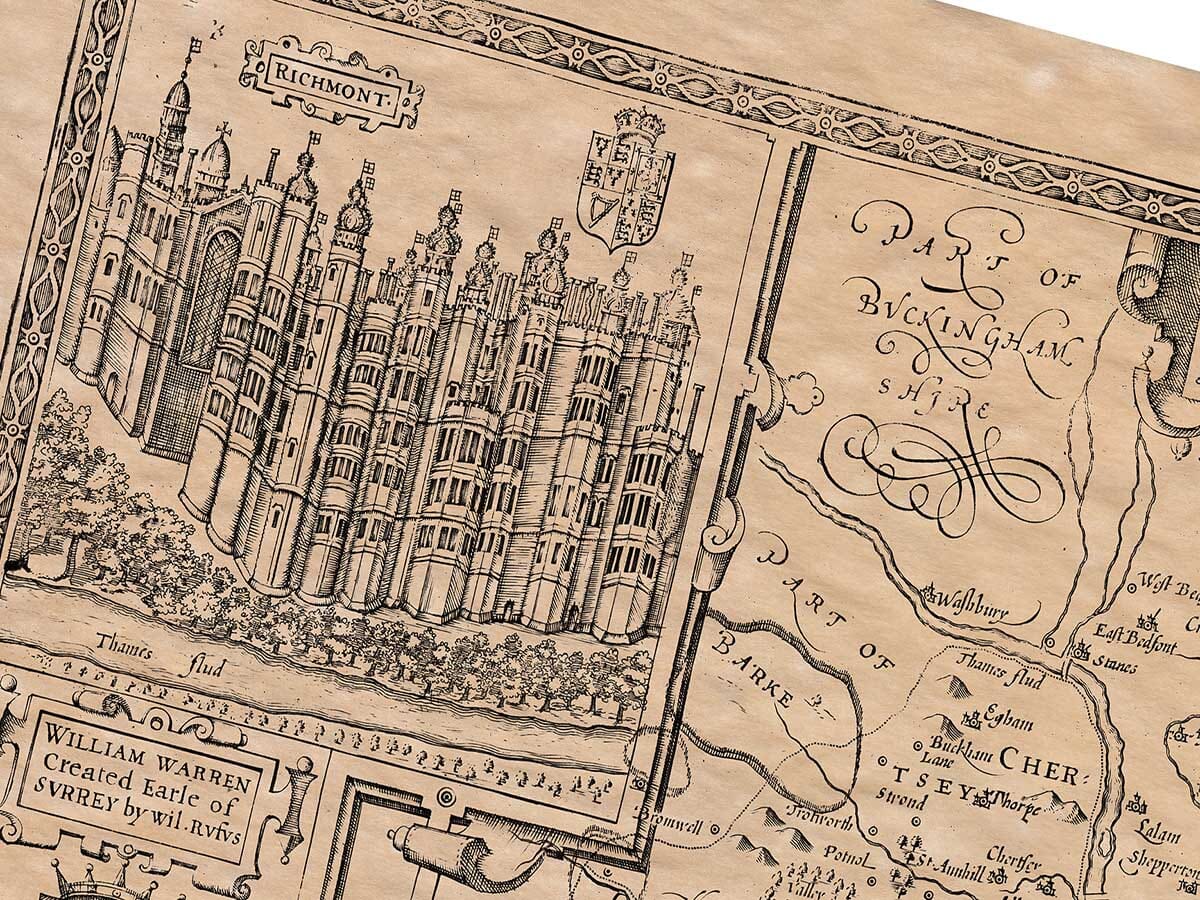 RICHMONT.
Thames flud
WILLIAM WARREN
Created Earle of
SVRREY by Wil. Rvfvs
PART OF
BVCKINGHAM
SHIRE
PART OF
BARKE
Washbury
East Bedfont
Stanes
Thames flud
Egham
Buckham
Lane
CHER:
TSEY
Thorpe
Strond
Trotworth
Bromwell
Potnol
St. Annhill
Chertsey
Valley
Lalam
Shepperton